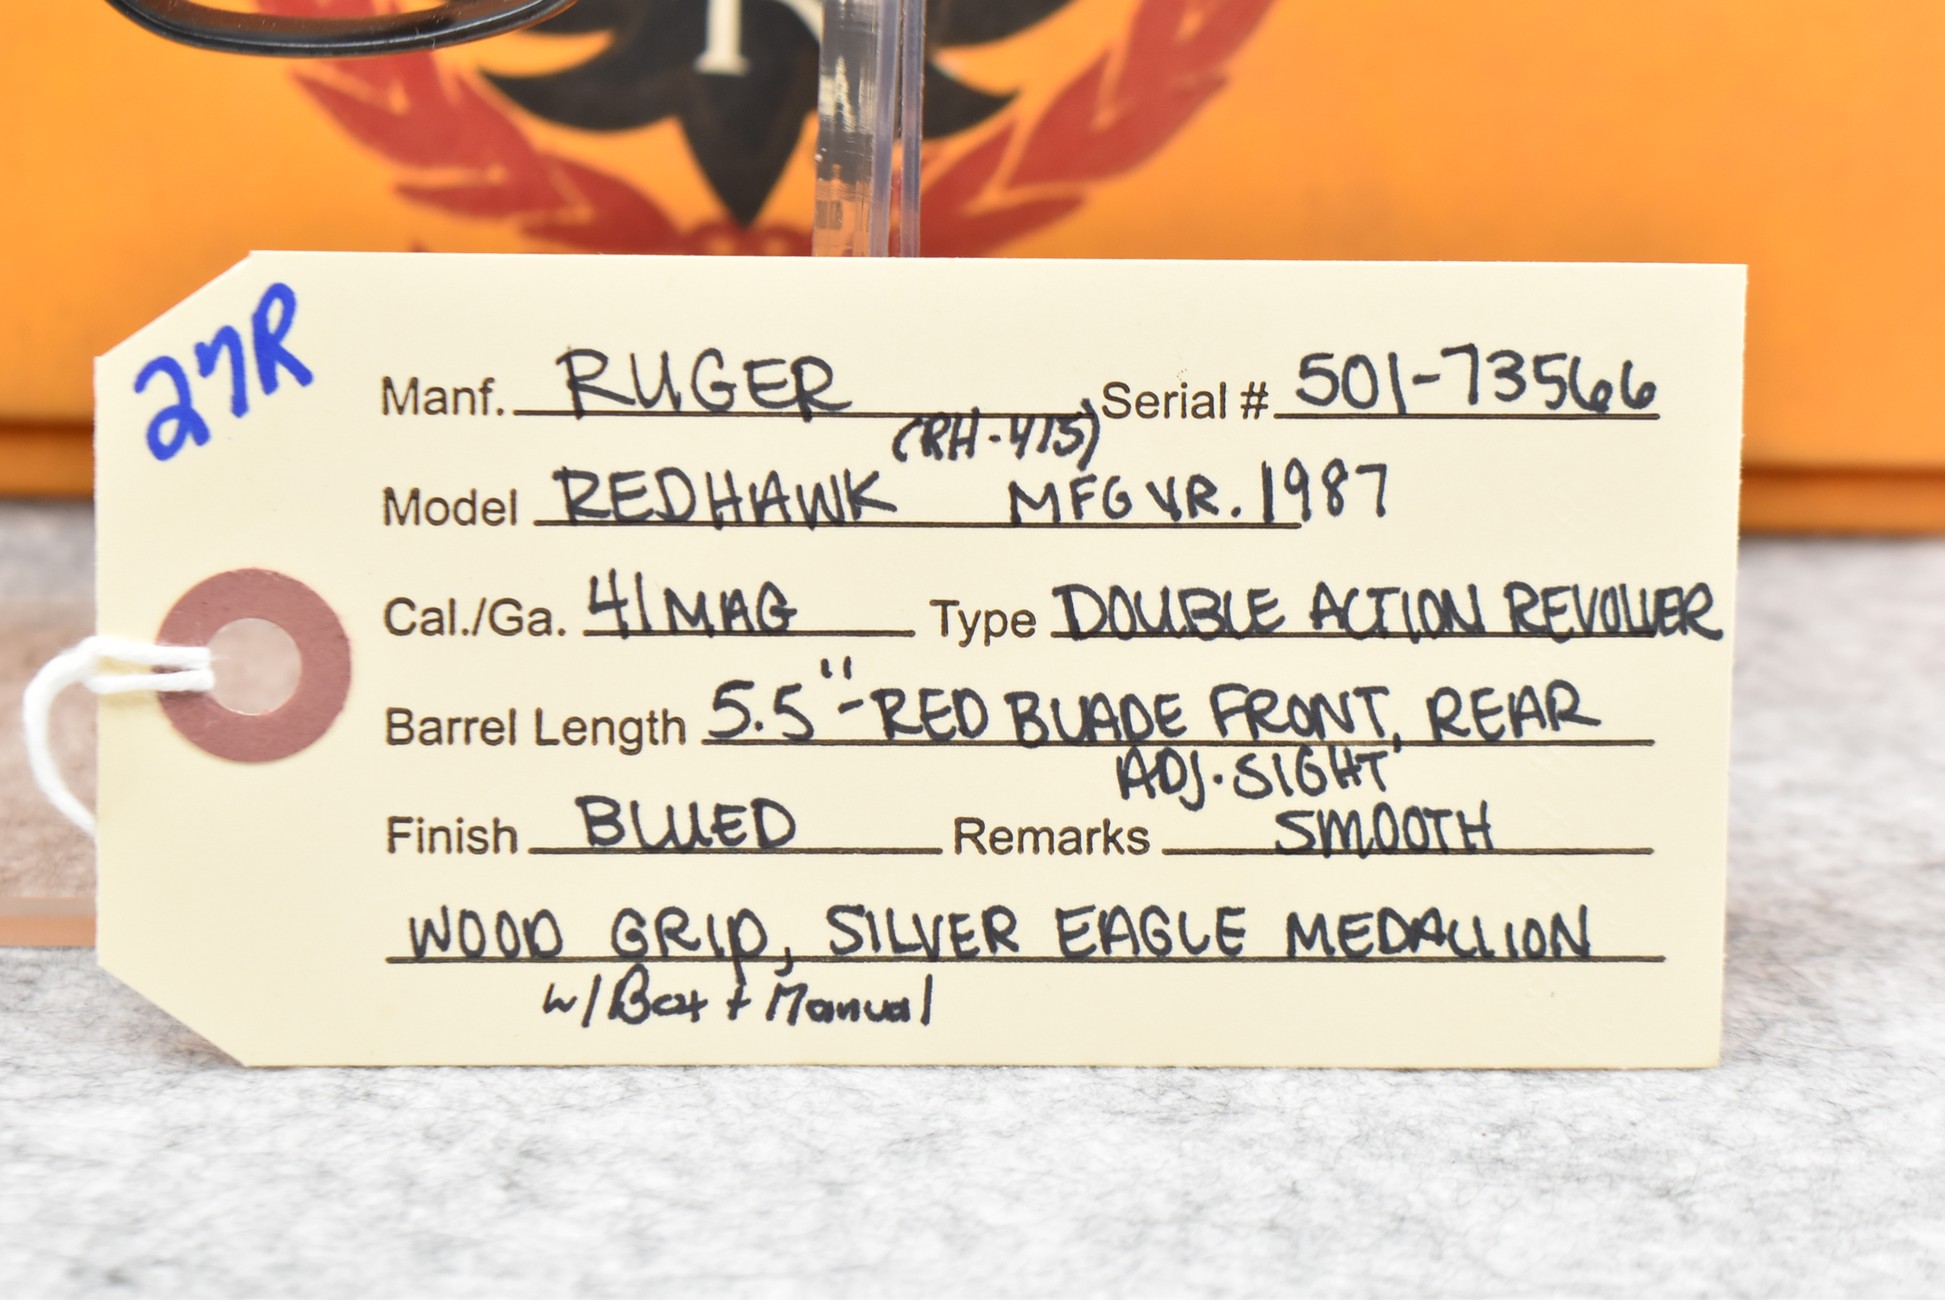 R
27R
Manf. RUGER Serial # 501-73566
(RH-415)
Model REDHAWK MFG YR. 1987
Cal./Ga. 41 MAG Type DOUBLE ACTION REVOLVER
Barrel Length 5.5"-RED BLADE FRONT, REAR
ADJ. SIGHT
Finish BLUED Remarks SMOOTH
WOOD GRIP, SILVER EAGLE MEDALLION
w/Box + Manual